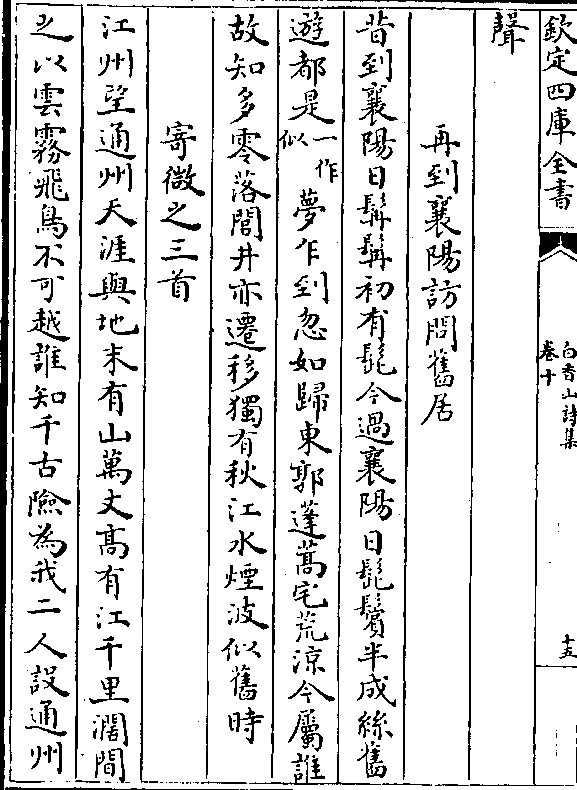 欽定四庫全書
白香山詩集
卷十
十五
聲
再到襄陽訪問舊居
昔到襄陽日髯髯初有髭今過襄陽日髭鬢半成絲舊
遊都是一作似夢乍到忽如歸東郭蓬蒿宅荒涼今屬誰
故知多零落閭井亦遷移獨有秋江水煙波似舊時
寄微之三首
江州望通州天涯與地末有山萬丈髙有江千里濶間
之以雲霧飛鳥不可越誰知千古險為我二人設通州